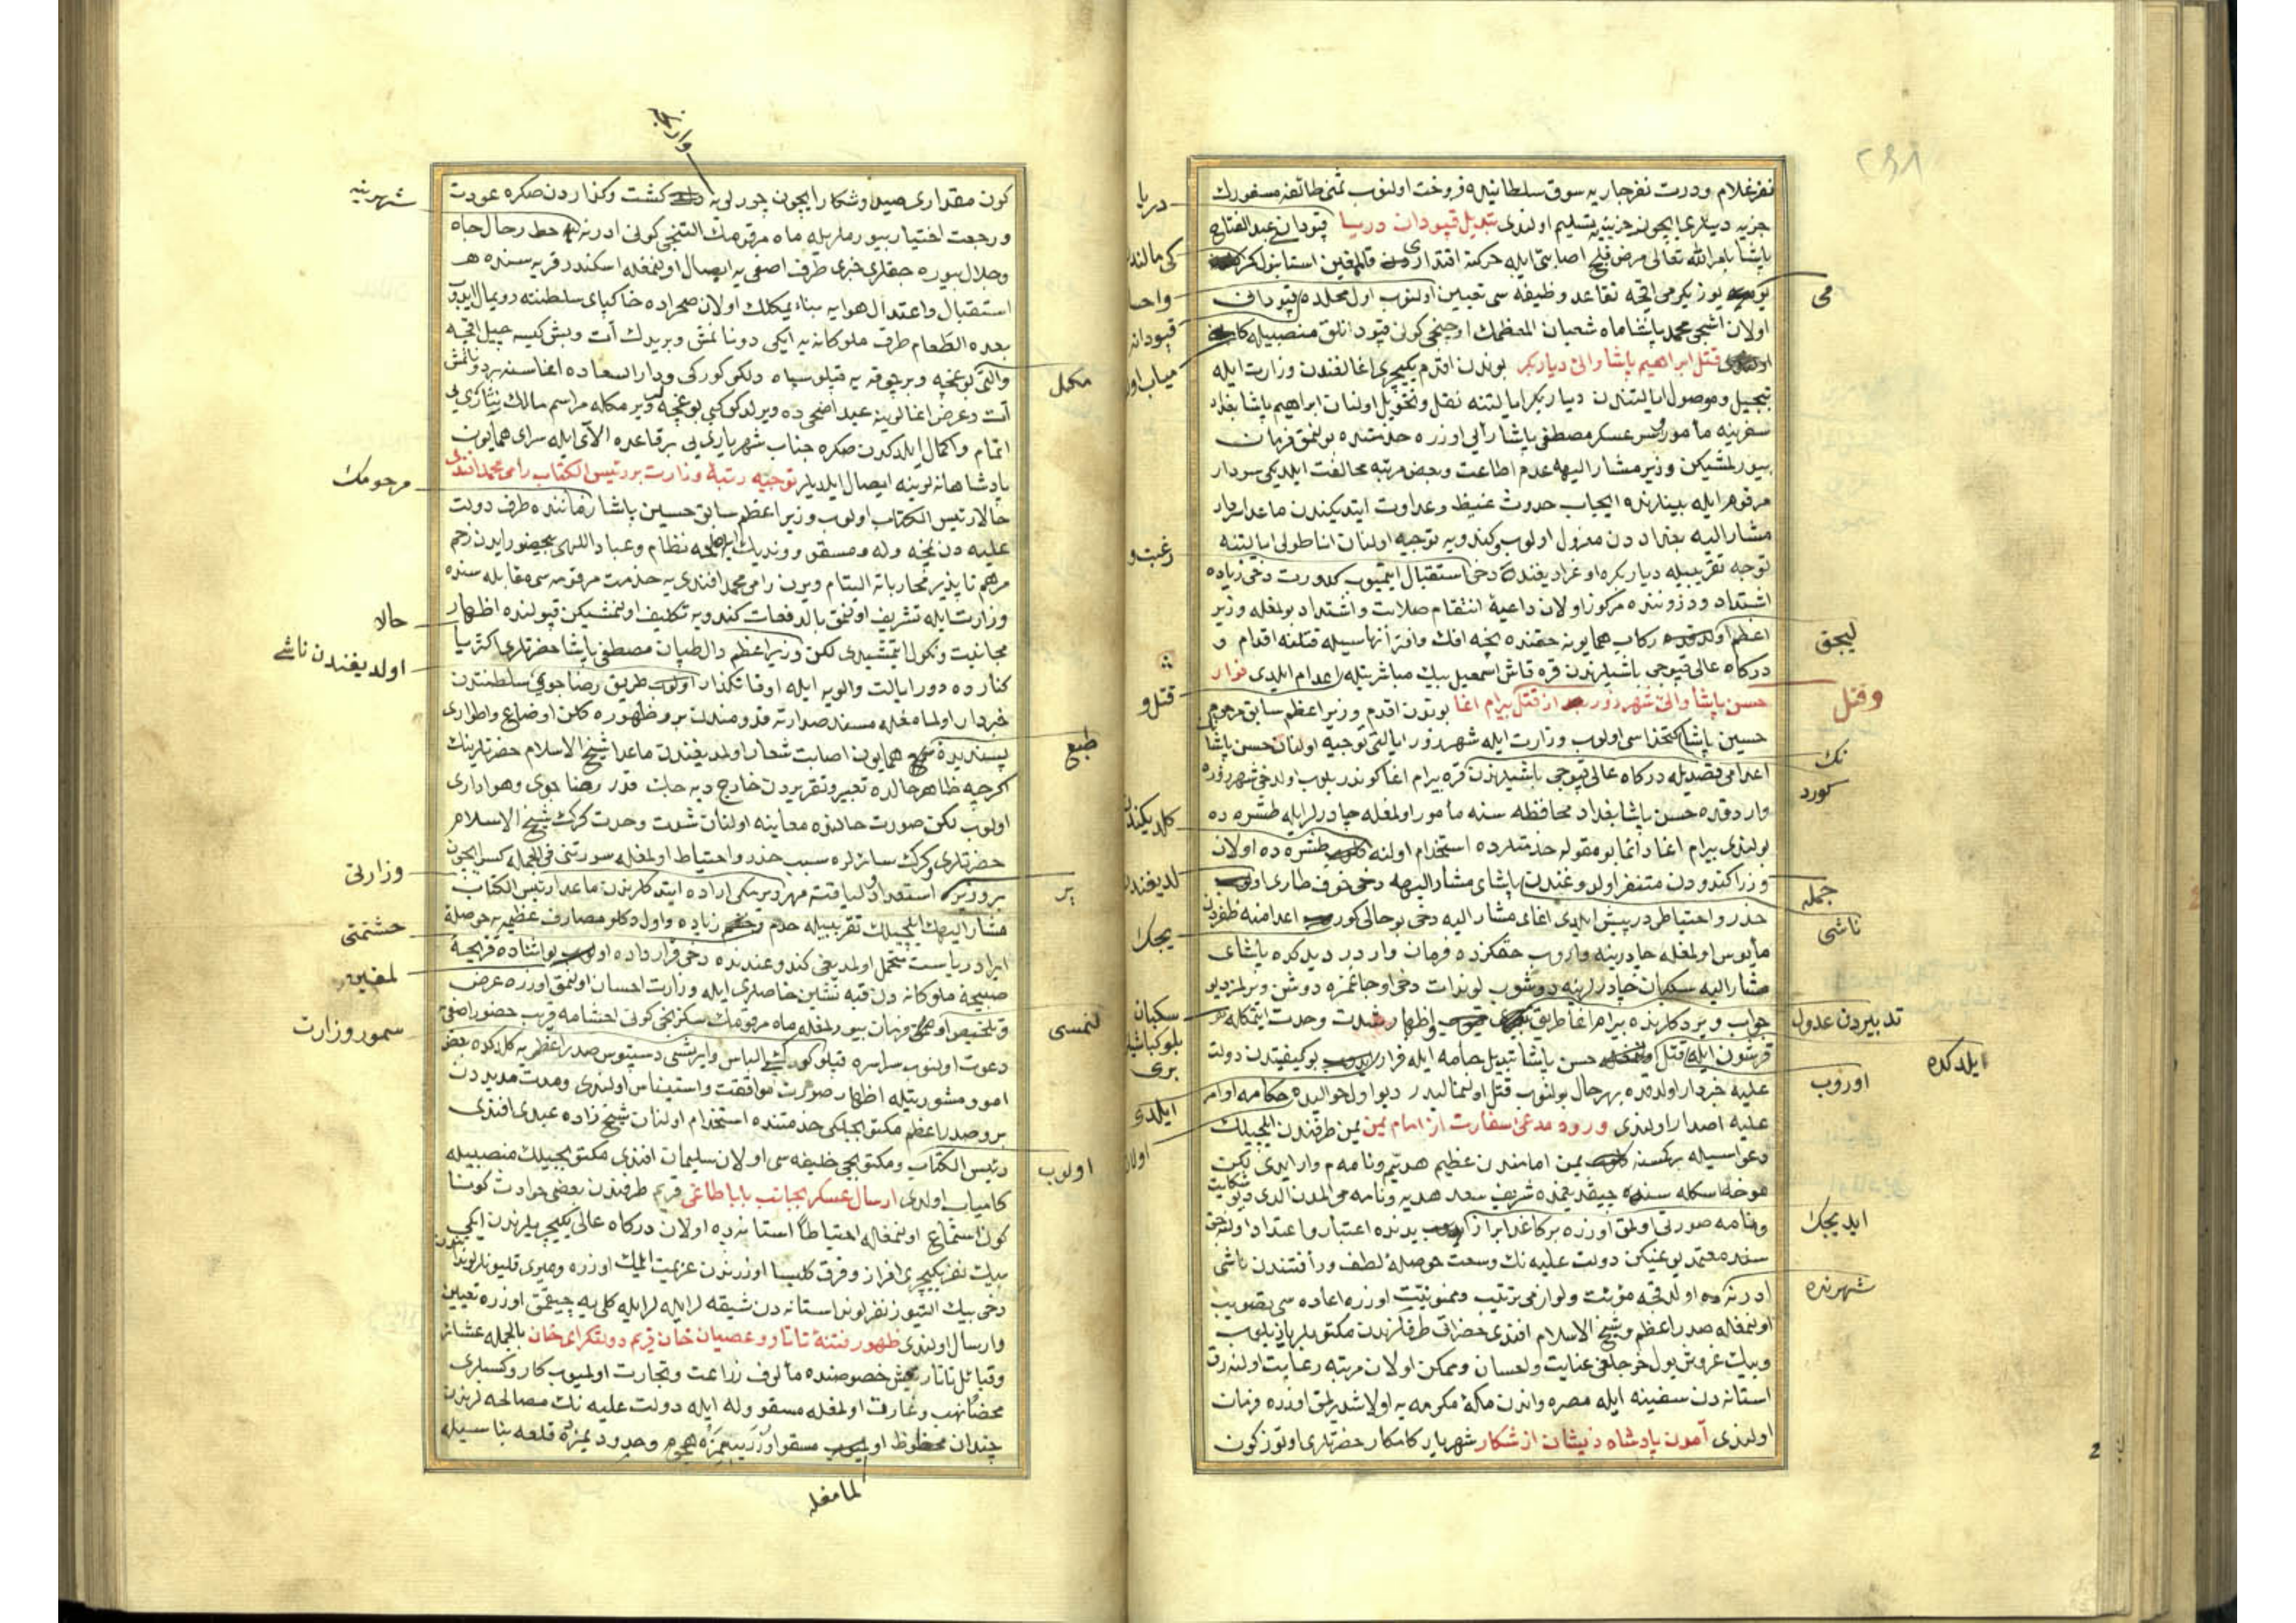 نفر غلام ودرت نفر جاریه سوق سلطانیده فروخت اولنوب ثمنی طائفه مسفورك
جزیه دیلری ایچون خزینه یه تسلیم اولندی تبدیل قپودان دریا قپودان عبد الفتاح
پاشا بامر الله تعالی مرض فلج اصابتی ایله حركته اقتداری
یوز یكرمی اقچه تقاعد وظیفه سی تعیین اولنوب اول محلده قپودان
اولان اشجی محمد پاشا ماه شعبان المعظمك اوچنجی كونی قپودانلق منصبیله
قتل ابراهیم پاشا والئ دیاربكر بوندن اقدم یكیچری اغالغندن وزارت ایله
تبجیل وموصل ایالتندن دیاربكر ایالتنه نقل وتحویل اولنان ابراهیم پاشا بغداد
سفرینه مأمور سر عسكر مصطفی پاشا رأیی اوزره خدمتنده بولنمق فرمان
بیورلمشیكن وزیر مشار الیهه عدم اطاعت وبعض مرتبه مخالفت ایلدیكی سردار
مرقوم ایله بینلرنده ایجاب حدوث غیظ وعداوت ایتدیكندن ماعدا سردار
مشار الیه بغداددن معزول اولوب كندویه توجیه اولنان اناطولی ایالتنه
توجه تقریبیله دیاربكره اوغرادیغنده دخی استقبال ایتمیوب كدورت دخی زیاده
اشتداد ودرونده مركوز اولان داعیۀ انتقام صلابت واشتداد بولمغله وزیر
اعظم ركاب همایونه حقنده نیجه افك وافترا انهاسیله قتلنه اقدام و
دركاه عالی قپوجی باشیلرندن قره قاش اسمعیل بیك مباشرتیله اعدام ایلدی فرار
حسن پاشا والئ شهرزور از قتل بیرام اغا بوندن اقدم وزیر اعظم سابق مرحوم
حسین پاشا كتخداسی اولوب وزارت ایله شهرزور ایالتی توجیه اولنان حسن پاشا
اعدامی قصدیله دركاه عالی قپوجی باشیلرندن قره بیرام اغا كوندریلوب اولدخی شهرزوره
واردقده حسن پاشا بغداد محافظه سنه مأمور اولمغله چادرلر ایله طشره ده
بولندی بیرام اغا دائما بو مقوله خدمتلرده استخدام اولنه طشره ده اولان
وزرا كندودن متنفر اولدوغندن پاشای مشار الیهه دخی خوف طاری
حذر واحتیاطی درپیش ایلدی اغای مشار الیه دخی بو حالی اعدامنه ظفردن
مأیوس اولمغله چادرینه واروب حقكزده فرمان واردر دیدكده پاشای
مشار الیه سكبان چادرلرینه دوشوب لوندات دخی اوجاغمزه دوشن ویرلمز دیو
جواب ویردكلرنده بیرام اغا طریق واظهار شدت وحدت ایتمكله
قرشون ایله قتل حسن پاشا تبدیل جامه ایله فرار بو كیفیتدن دولت
علیه خبردار اولدقده بهرحال بولنوب قتل اولنمالیدر دیو اول حوالیده حكامه اوامر
علیه اصدار اولندی ورود مدعئ سفارت از امام یمن یمن طرفندن ایلچیلك
دعواسیله بر كسنه یمن امامندن عظیم هدیه م ونامه م وار ایدی لكن
موخا اسكله سنده چیقدیغمده شریف سعد هدیه ونامه می الدی دیو شكایت
ونامه صورتی اولمق اوزره بر كاغد ابراز یدنده اعتبار واعتماد اولنه جق
سند معتمد یوغیكن دولت علیه نك وسعت حوصلۀ لطف ورأفتندن ناشی
ادرنه ده اولدقجه مؤنت ولوازمی ترتیب وممنونیت اوزره اعاده سی تصویب
اولنمغله صدر اعظم وشیخ الاسلام افندی حضراتی طرفلرندن مكتوبلر یازیلوب
وبیك غروش یول خرجلغی عنایت واحسان وممكن اولان مرتبه رعایت اولنه رق
استانه دن سفینه ایله مصره واندن مكۀ مكرمه یه اولاشدیرلمق اوزره فرمان
اولندی آمدن پادشاه ذیشان از شكار شهریار كامكار حضرتلری اوتوز كون
دریا
قپودانه
رغبت و
قتل و
كلدیكندن
لدیغندن
یجك
سكبان
بلوكباشیلری
ایلدی
می
لیجق
وقتل
نك
كورد
جمله
ناشی
تدبیردن عدول
ایلدكده
اوروب
ایدیجك
شهرنده
كون مقداری صید وشكار ایچون چورلویه كشت وكذاردن صكره عودت
ورجعت اختیار بیورملریله ماه مرقومك التنجی كونی ادرنه حط رحال جاه
وجلال بیوره جقلری خبری طرف اصفی یه ایصال اولنمغله اسكندر قریه سنده
استقبال واعتدال هوایه بناء یمكلك اولان صحراده خاكپای سلطنته رویمال ایدوب
بعده الطعام طرف ملوكانه یه ایكی دونانمش وبریدك آت وبش كیسه چیل اقچه
والتی بوغچه وبر چوقه یه قپلو سیاه دلكو كوركی ودار السعاده اغاسنه بر دونانمش
آت وعرض اغالرینه عید اضحی ده ویرلدوكی كبی بوغچه لر ویرمكله مراسم مالك نثاری یی
اتمام واكمال ایلدكدن صكره جناب شهریاری یی بر قاعده الای ایله سرای همایون
پادشاهانه لرینه ایصال ایلدیلر توجیه رتبۀ وزارت بر رئیس الكتاب رامی محمد افندی
حالا رئیس الكتاب اولوب وزیر اعظم سابق حسین پاشا زماننده طرف دولت
علیه دن نمچه وله ومسقو ووندیك ایله نظام وعباد اللهی بیحضور ایدن زخم
مرهم ناپذیر محارباته التیام ویرن رامی محمد افندی یه خدمت مرقومه سی مقابله سنده
وزارت ایله تشریف اولنمق بالدفعات كندویه تكلیف اولنمشیكن قبولنده اظهار
مجانبت ونكول ایتمشیدی لكن وزیر اعظم دال طبان مصطفی پاشا حضرتلری اكثریا
كنارده دور ایالت والویه ایله اوقاتكذار طریق رضاجوئ سلطنتدن
خبردار اولمامغله مسند صدارته قدومندن برو ظهوره كلن اوضاع واطواری
پسندیدۀ همایون اصابت شعار اولمدیغندن ماعدا شیخ الاسلام حضرتلرینك
كرچه ظاهر حالده تعبیر وتقریردن خارج دیه جك قدر رضاجوی وهواداری
اولوب لكن صورت حالنده معاینه اولنان شدت وحدت كرك شیخ الاسلام
حضرتلری وكرك سائرلره سبب حذر واحتیاط اولمغله سورتنی فی الجمله كسر ایچون
استعداد ولیاقتنه مهر ویرمكی اراده ایتدكلرندن ماعدا رئیس الكتاب
مشار الیهك ایلچیلك تقریبیله خدم زیاده واول دكلو مصارف عظیمه یه حوصلۀ
ایراد ریاست متحمل اولمدیغی كندو عندنده دخی قرارداده بو اثناده قریحۀ
صبیحۀ ملوكانه دن قبه نشین خاصلری ایله وزارت احسان اولنمق اوزره عرض
وتلخیص فرمان بیورلمغله ماه مرقومك سكزنجی كونی احتشامه قریب حضور اصفی یه
دعوت اولنوب سراسره قپلو الباس وایرتسی دستبوس صدر اعظمی یه كلدكده بعض
امور مشورتیله اظهار صورت موافقت واستیناس اولندی ومدت مدیددن
برو صدر اعظم مكتوبجیلكی خدمتنده استخدام اولنان شیخ زاده عبدی افندی
رئیس الكتاب ومكتوبجی خلیفه سی اولان سلیمان افندی مكتوبجیلك منصبیله
كامیاب اولدی ارسال عسكر بجانب باباطاغی قریم طرفندن بعضی حوادث كونا
كون استماع اولنمغله احتیاطا استانه ده اولان دركاه عالی یكیچریلرندن ایكی
بیك نفر یكیچری افراز وقرق كلیسا اوزرندن عزیمت ایلمك اوزره ومیری قلیونلر لوندندن
دخی بیك التیوز نفر لوند استانه دن شیقه لر ایله كلی یه چیقمق اوزره تعیین
وارسال اولندی ظهور فتنۀ تاتار وعصیان خان قریم دولتكرای خان بالجمله عشائر
وقبائل تاتار تعیش خصوصنده مألوف زراعت وتجارت اولمیوب كار وكسبلری
محضا نهب وغارت اولمغله مسقو وله ایله دولت علیه نك مصالحه لرندن
چندان محظوظ مسقو اوزرینه هجوم وحدودیمزه قلعه بناسیله
شهرینه
مرحومك
حالا
اولدیغندن ناشی
وزارتی
حشمتی
لمغین
سمور وزارت
مكمل
طبع
بر
لنمسی
اولوب
لمامغله